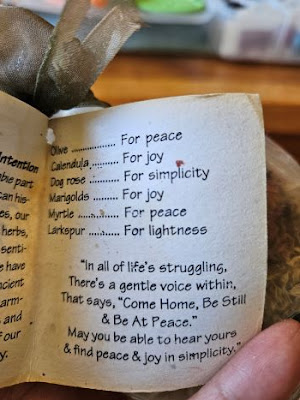 Intention
Olive ................ For peace
Calendula .......... For joy
Dog rose .......... For simplicity
Marigolds ......... For joy
Myrtle ............. For peace
Larkspur ......... For lightness
"In all of life's struggling,
There's a gentle voice within,
That says, "Come Home, Be Still
& Be At Peace."
May you be able to hear yours
& find peace & joy in simplicity."
part
can his-
our
herbs,
senti-
have
ancient
arm-
and
of our